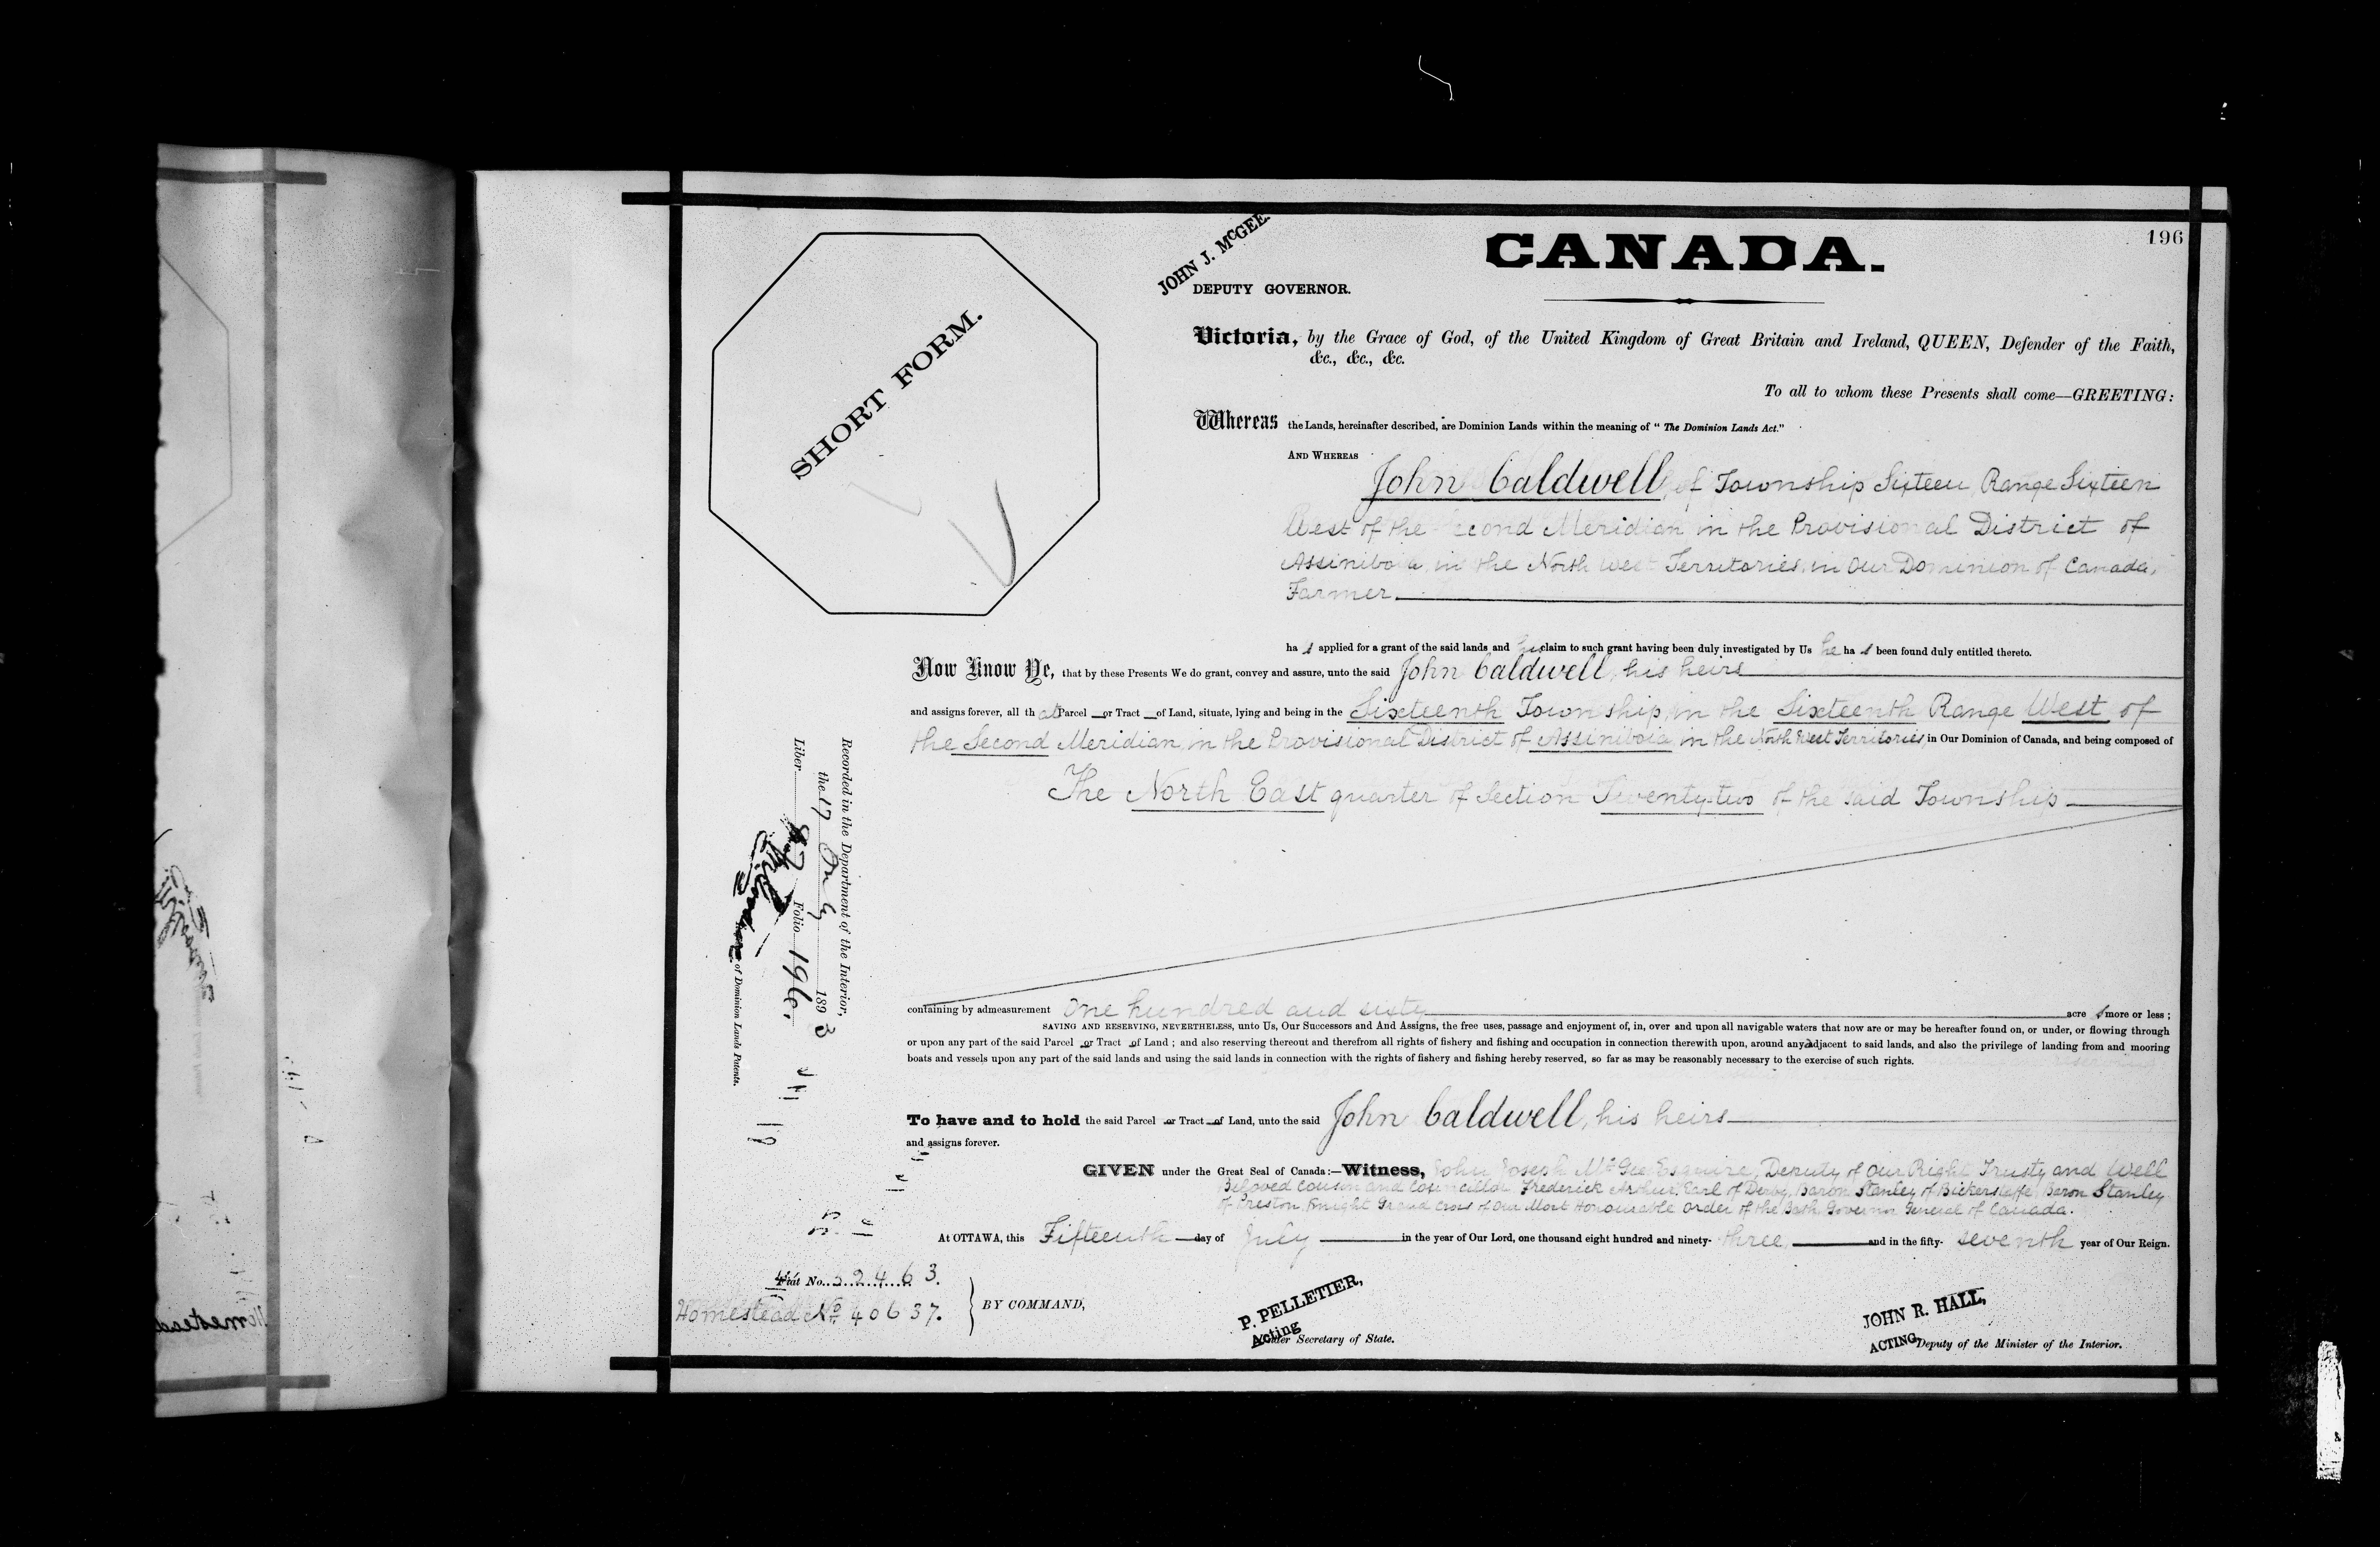 196
CANADA.
JOHN J. McGEE.
DEPUTY GOVERNOR.
SHORT FORM.
Victoria, by the Grace of God, of the United Kingdom of Great Britain and Ireland, QUEEN, Defender of the Faith,
&c., &c., &c.
To all to whom these Presents shall come—GREETING:
Whereas the Lands, hereinafter described, are Dominion Lands within the meaning of "The Dominion Lands Act."
AND WHEREAS
John Caldwell, of Township Sixteen, Range Sixteen
West of the Second Meridian in the Provisional District of
Assiniboia, in the North West Territories, in Our Dominion of Canada,
Farmer
has applied for a grant of the said lands and his claim to such grant having been duly investigated by Us he has been found duly entitled thereto.
Now Know Ye, that by these Presents We do grant, convey and assure, unto the said John Caldwell, his heirs
and assigns forever, all that Parcel or Tract of Land, situate, lying and being in the Sixteenth Township, in the Sixteenth Range West of
the Second Meridian, in the Provisional District of Assiniboia, in the North West Territories, in Our Dominion of Canada, and being composed of
The North East quarter of Section Twenty-two of the said Township
containing by admeasurement One hundred and sixty acres more or less;
SAVING AND RESERVING, NEVERTHELESS, unto Us, Our Successors and And Assigns, the free uses, passage and enjoyment of, in, over and upon all navigable waters that now are or may be hereafter found on, or under, or flowing through
or upon any part of the said Parcel or Tract of Land; and also reserving thereout and therefrom all rights of fishery and fishing and occupation in connection therewith upon, around any adjacent to said lands, and also the privilege of landing from and mooring
boats and vessels upon any part of the said lands and using the said lands in connection with the rights of fishery and fishing hereby reserved, so far as may be reasonably necessary to the exercise of such rights.
To have and to hold the said Parcel or Tract of Land, unto the said John Caldwell, his heirs
and assigns forever.
GIVEN under the Great Seal of Canada:—Witness, John Joseph McGee Esquire, Deputy of Our Right Trusty and Well
Beloved Cousin and Councillor Frederick Arthur, Earl of Derby, Baron Stanley of Bickerstaffe, Baron Stanley
of Preston, Knight Grand Cross of Our Most Honourable Order of the Bath Governor General of Canada.
At OTTAWA, this Fifteenth day of July in the year of Our Lord, one thousand eight hundred and ninety-three, and in the fifty-seventh year of Our Reign.
Fiat No. 52463.
Homestead No 40637.
BY COMMAND,
P. PELLETIER,
Acting Under Secretary of State.
JOHN R. HALL,
ACTING Deputy of the Minister of the Interior.
Recorded in the Department of the Interior,
the 17 1893
Liber 87 Folio 196.
of Dominion Lands Patents.